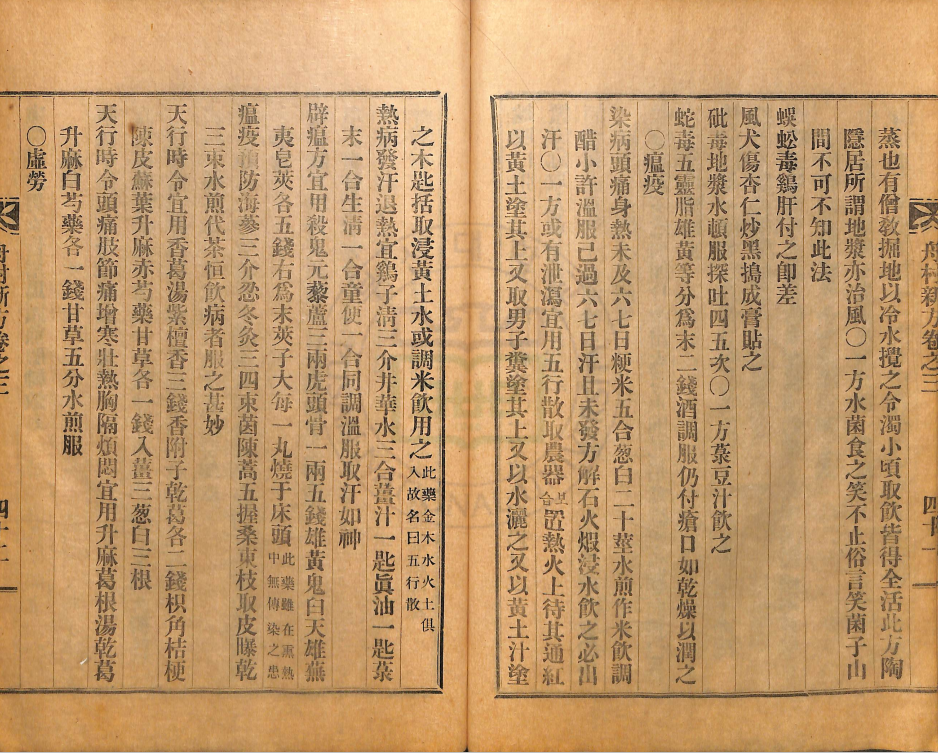 蒸也有僧敎掘地以冷水攪之令濁小頃取飮皆得全活此方陶
隱居所謂地漿亦治風〇一方水菌食之笑不止俗言笑菌子山
間不可不知此法
蜈蚣毒鷄肝付之卽差
風犬傷杏仁炒黑搗成膏貼之
砒毒地漿水頓服探吐四五次〇一方菉豆汁飮之
蛇毒五靈脂雄黃等分爲末二錢酒調服仍付瘡口如乾燥以潤之
〇瘟疫
染病頭痛身熱未及六七日粳米五合葱白二十莖水煎作米飮調
醋小許溫服已過六七日汗且未發方解石火煆浸水飮之必出
汗〇一方或有泄瀉宜用五行散取農器置熱火上待其通紅
以黃土塗其上又取男子糞塗其上又以水灑之又以黃土汁塗
之木匙括取浸黃土水或調米飮用之此藥金木水火土俱入故名曰五行散
熱病發汗退熱宜鷄子淸三介井華水三合薑汁一匙眞油一匙菉
末一合生淸一合童便一合同調溫服取汗如神
辟瘟方宜用殺鬼元藜蘆三兩虎頭骨一兩五錢雄黃鬼臼天雄蕪
夷皂莢各五錢右爲末莢子大每一丸燒于床頭此藥雖在熏熱中無傳染之患
瘟疫預防海蔘三介忍冬灸三四束茵陳蒿五握桑東枝取皮曝乾
三束水煎代茶恒飮病者服之甚妙
天行時令宜用香葛湯紫檀香三錢香附子乾葛各二錢枳角桔梗
陳皮蘇葉升麻赤芍藥甘草各一錢入薑三葱白三根
天行時令頭痛肢節痛增寒壯熱胸隔煩悶宜用升麻葛根湯乾葛
升麻白芍藥各一錢甘草五分水煎服
〇虛勞
舟村新方卷之三